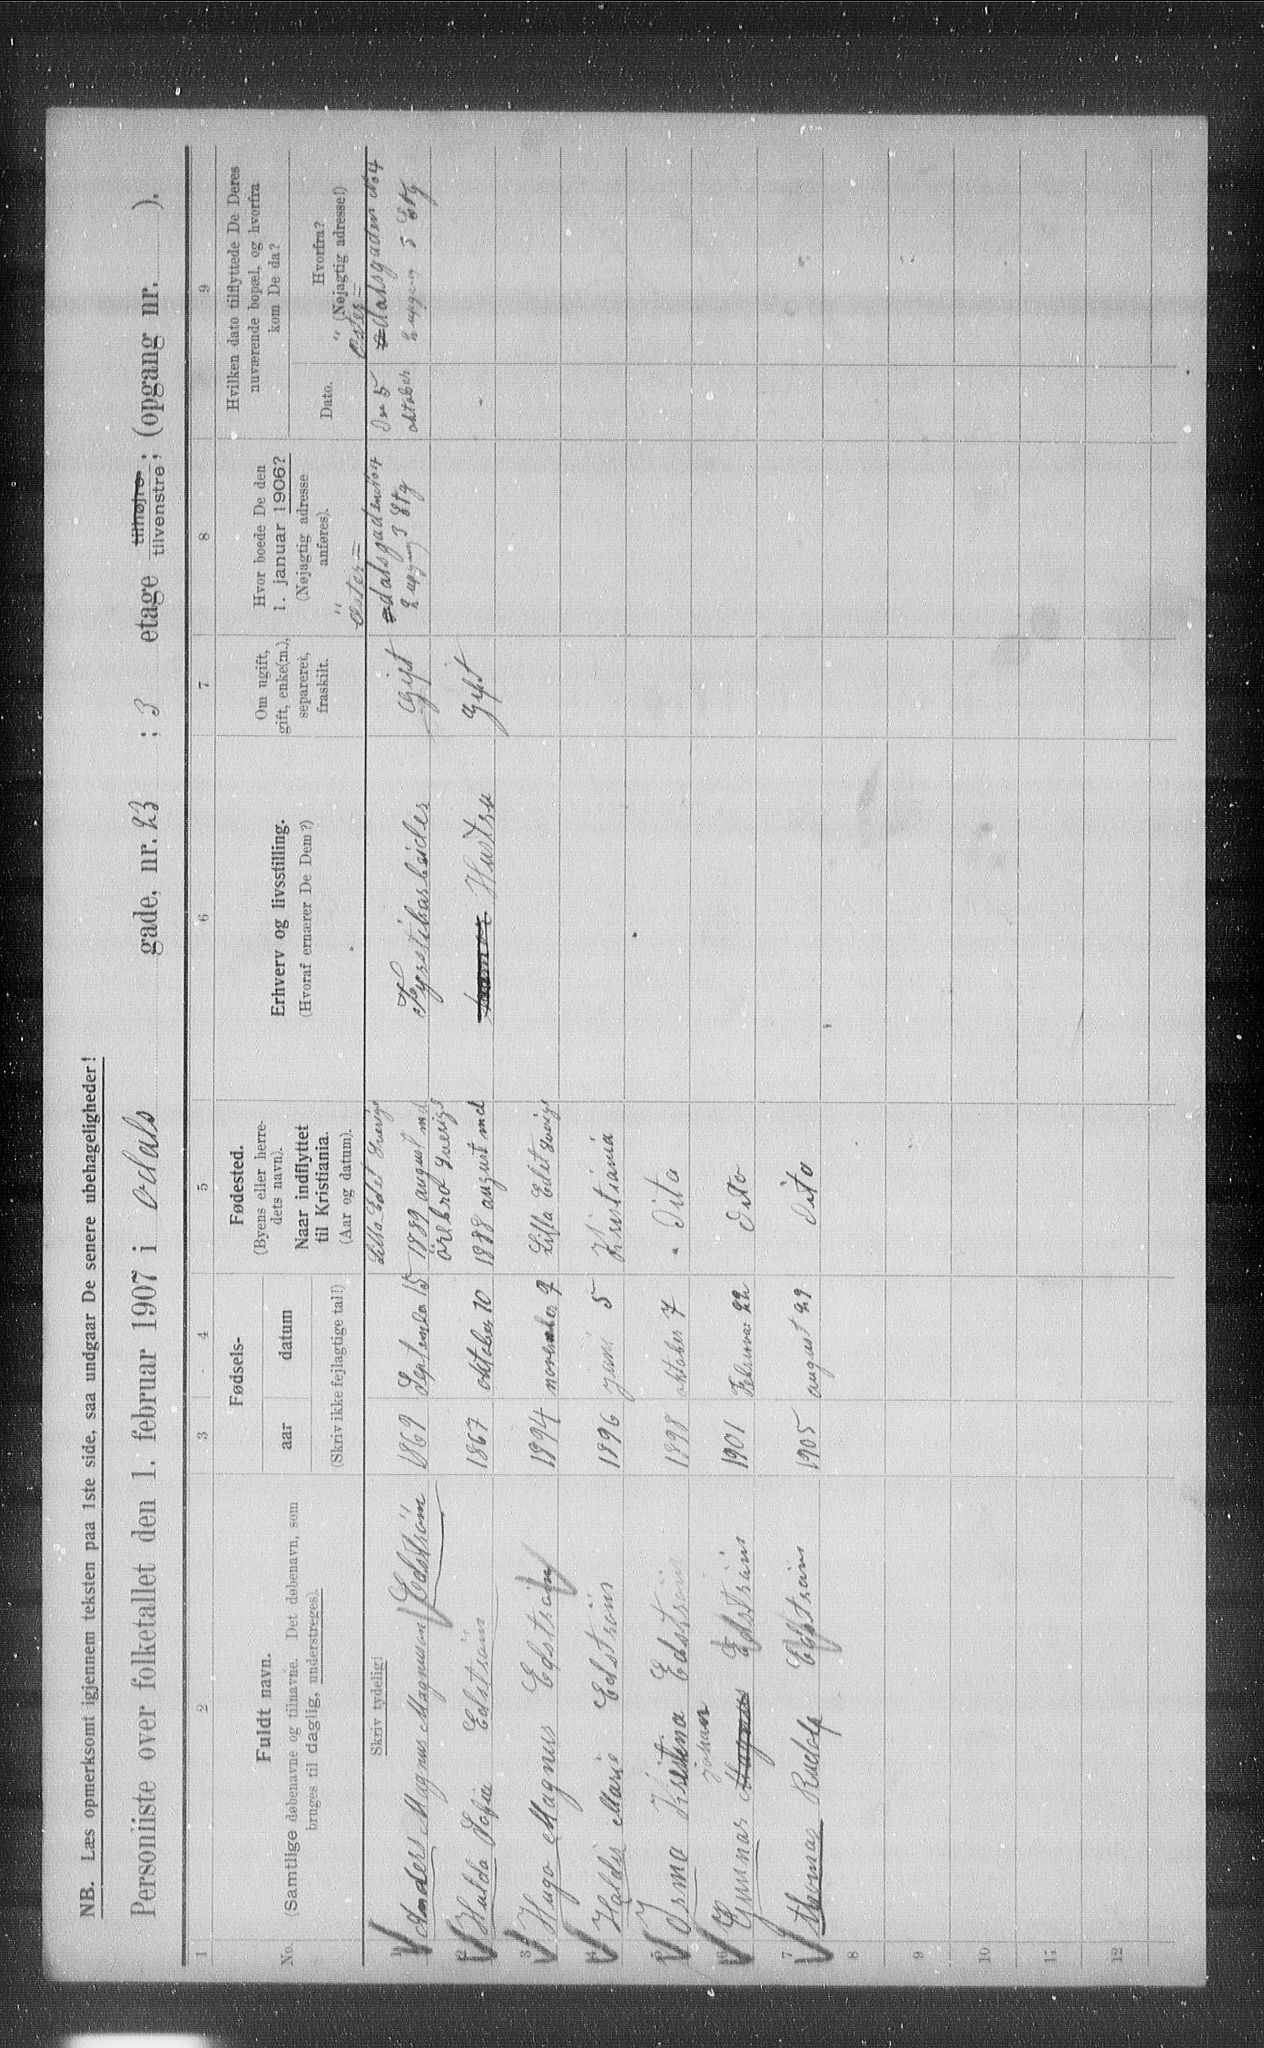 NB. Læs opmerksomt igjennem teksten paa 1ste side, saa undgaar De senere ubehageligheder!
Personliste over folketallet den 1. februar 1907 i Odals gade, nr. 23 : 3 etage tilhøjre tilvenstre; (opgang nr. ).
1 2 3 4 5 6 7 8 9
No.
Fuldt navn.
(Samtlige døbenavne og tilnavne. Det døbenavn, som
bruges til daglig, understreges).
Skriv tydelig!
Fødsels-
aar datum
(Skriv ikke fejlagtige tal!)
Fødested.
(Byens eller herre-
dets navn).
Naar indflyttet
til Kristiania.
(Aar og datum).
Erhverv og livsstilling.
(Hvoraf ernærer De Dem?)
Om ugift,
gift, enke(m.),
separeret,
fraskilt.
Hvor boede De den
1. januar 1906?
(Nøjagtig adresse
anføres).
Hvilken dato tilflyttede De Deres
nuværende bopæl, og hvorfra
kom De da?
Dato.
Hvorfra?
(Nøjagtig adresse!)
1 Anders Magnus Magnuson Edström 1869 September 15 Lilla Edet Sverige 1889 august md Fyrstikarbeider Gift Øster= dalsgaden No 4 2 upgang 3 Etg Den 5 oktober Øster= dalsgaden No 4 2 upgang 3 Etg
2 Hulda Sofia Edström 1867 oktober 10 Örebro Sverige 1888 august md Hustru Gift
3 Hugo Magnus Edström 1894 november 9 Lilla Edet Sverige
4 Haldis Marie Edström 1896 juni 5 Kristiania
5 Irma Kristina Edström 1898 oktober 7 Dito
6 Gunnar Magnus Johan Edström 1901 Februar 22 Dito
7 Thomas Rudolf Edström 1905 august 29 Dito
8
9
10
11
12